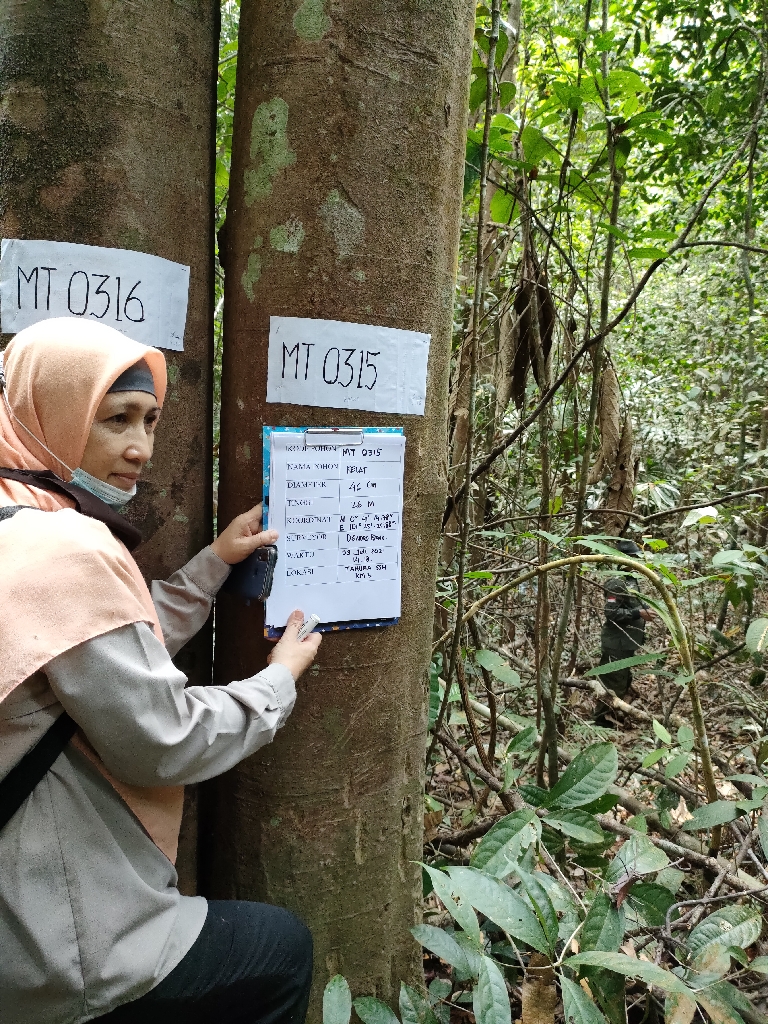 MT 0316
MT 0315
KODE POHON MT 0315
NAMA POHON KELAT
DIAMETER 41 Cm
TINGGI 26 M
KOORDINAT
SURVEYOR
WAKTU 03 JULI 2021
LOKASI TAHURA SSH
KM 3